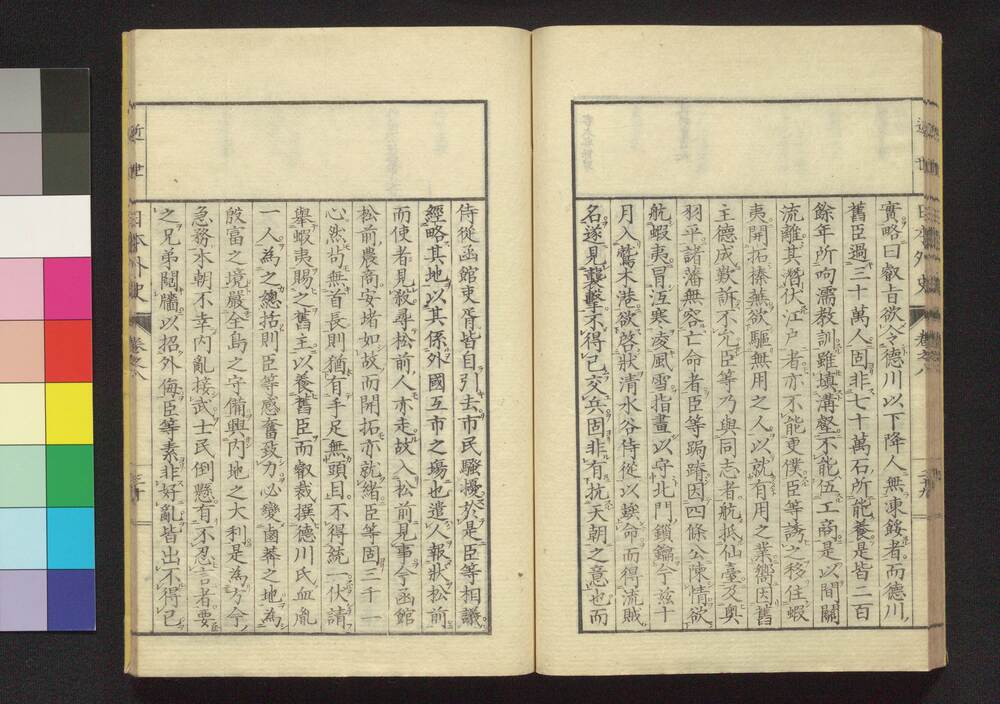 近世
日本外史
卷之八
實略曰叡旨欲令德川以下降人無凍餒者而德川
舊臣過三十萬人固非七十萬石所能養是皆二百
餘年所呴濡教訓雖填溝壑不能伍工商是以間關
流離其潛伏江戸者亦不能更僕臣等誘之移住蝦
夷開拓榛蕪欲驅無用之人以就有用之業嚮因舊
主德成歎訴不允臣等乃與同志者航抵仙臺及奥
羽平諸藩無容亡命者臣等跼蹐因四條公陳情欲
航蝦夷冒沍寒凌風雪指畫以守北門鎖鑰今玆十
月入鷲木港欲啓狀清水谷侍從以蟓命而得流賊
名遂見襲擊不得已交兵固非有抗天朝之意也而
侍從函館吏胥皆自引去市民騷擾於是臣等相議
經略其地以其係外國互市之場也遣人報狀松前
而使者見殺尋松前人亦走故入松前見事今函館
松前農商安堵如故而開拓亦就緒臣等固三千一
心然尚無酋長則猶有手足無頭目不得統一伏請
舉蝦夷賜之舊主以養舊臣而叡裁撰德川氏血胤
一人為之總括則臣等感奮致力必變鹵莽之地為
殷富之境嚴全島之守備興内地之大利是為方今
急務本朝不幸内亂接武士民倒懸有不忍言者要
之兄弟鬩牆以招外侮臣等素非好亂皆出不得已
近世
日本外史
卷之八
三十